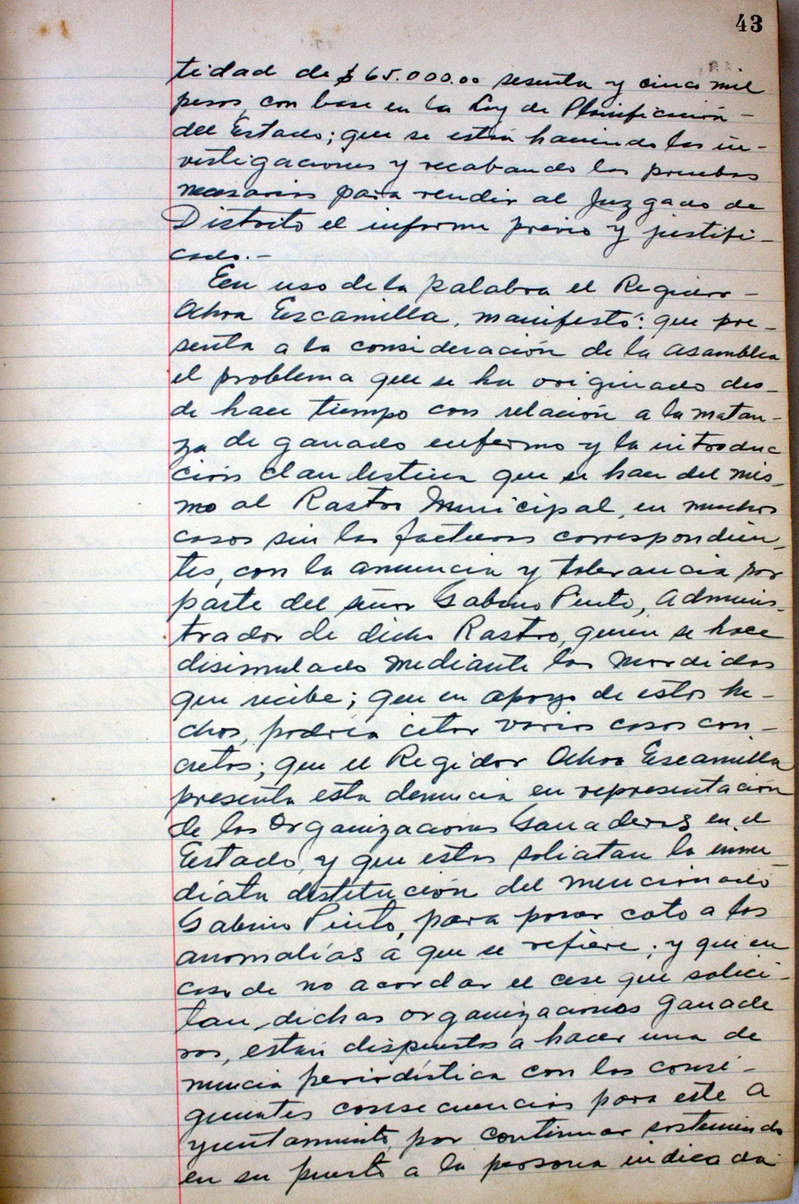 43
tidad de $65.000.00 sesenta y cinco mil
pesos, con base en la Ley de Planificación -
del Estado; que se están haciendo las in-
vestigaciones y recabando las pruebas
necesarias para rendir al Juzgado de
Distrito el informe previo y justifi-
cado.-
En uso de la palabra el Regidor -
Ochoa Escamilla, manifestó: que pre-
senta a la consideración de la asamblea
el problema que se ha originado des-
de hace tiempo con relación a la matan-
za de ganado enfermo y la introduc
ción clandestina que se hace del mis-
mo al Rastro Municipal, en muchos
casos sin las facturas correspondien-
tes, con la anuencia y tolerancia por
parte del señor Gabino Pinto, Adminis-
trador de dicho Rastro, quien se hace
disimulado mediante las mordidas
que recibe; que en apoyo de estos he-
chos, podría citar varios casos con-
cretos; que el Regidor Ochoa Escamilla
presenta esta denuncia en representación
de las Organizaciones Ganaderas en el
Estado, y que estas solicitan la inme
diata destitución del mencionado
Gabino Pinto, para poner coto a las
anomalías a que se refiere; y que en
caso de no acordar el cese que solici-
tan, dichas organizaciones ganade
ras, están dispuestas a hacer una de
nuncia periodística con las consi-
guientes consecuencias para este A
yuntamiento, por continuar sosteniendo
en su puesto a la persona indicada